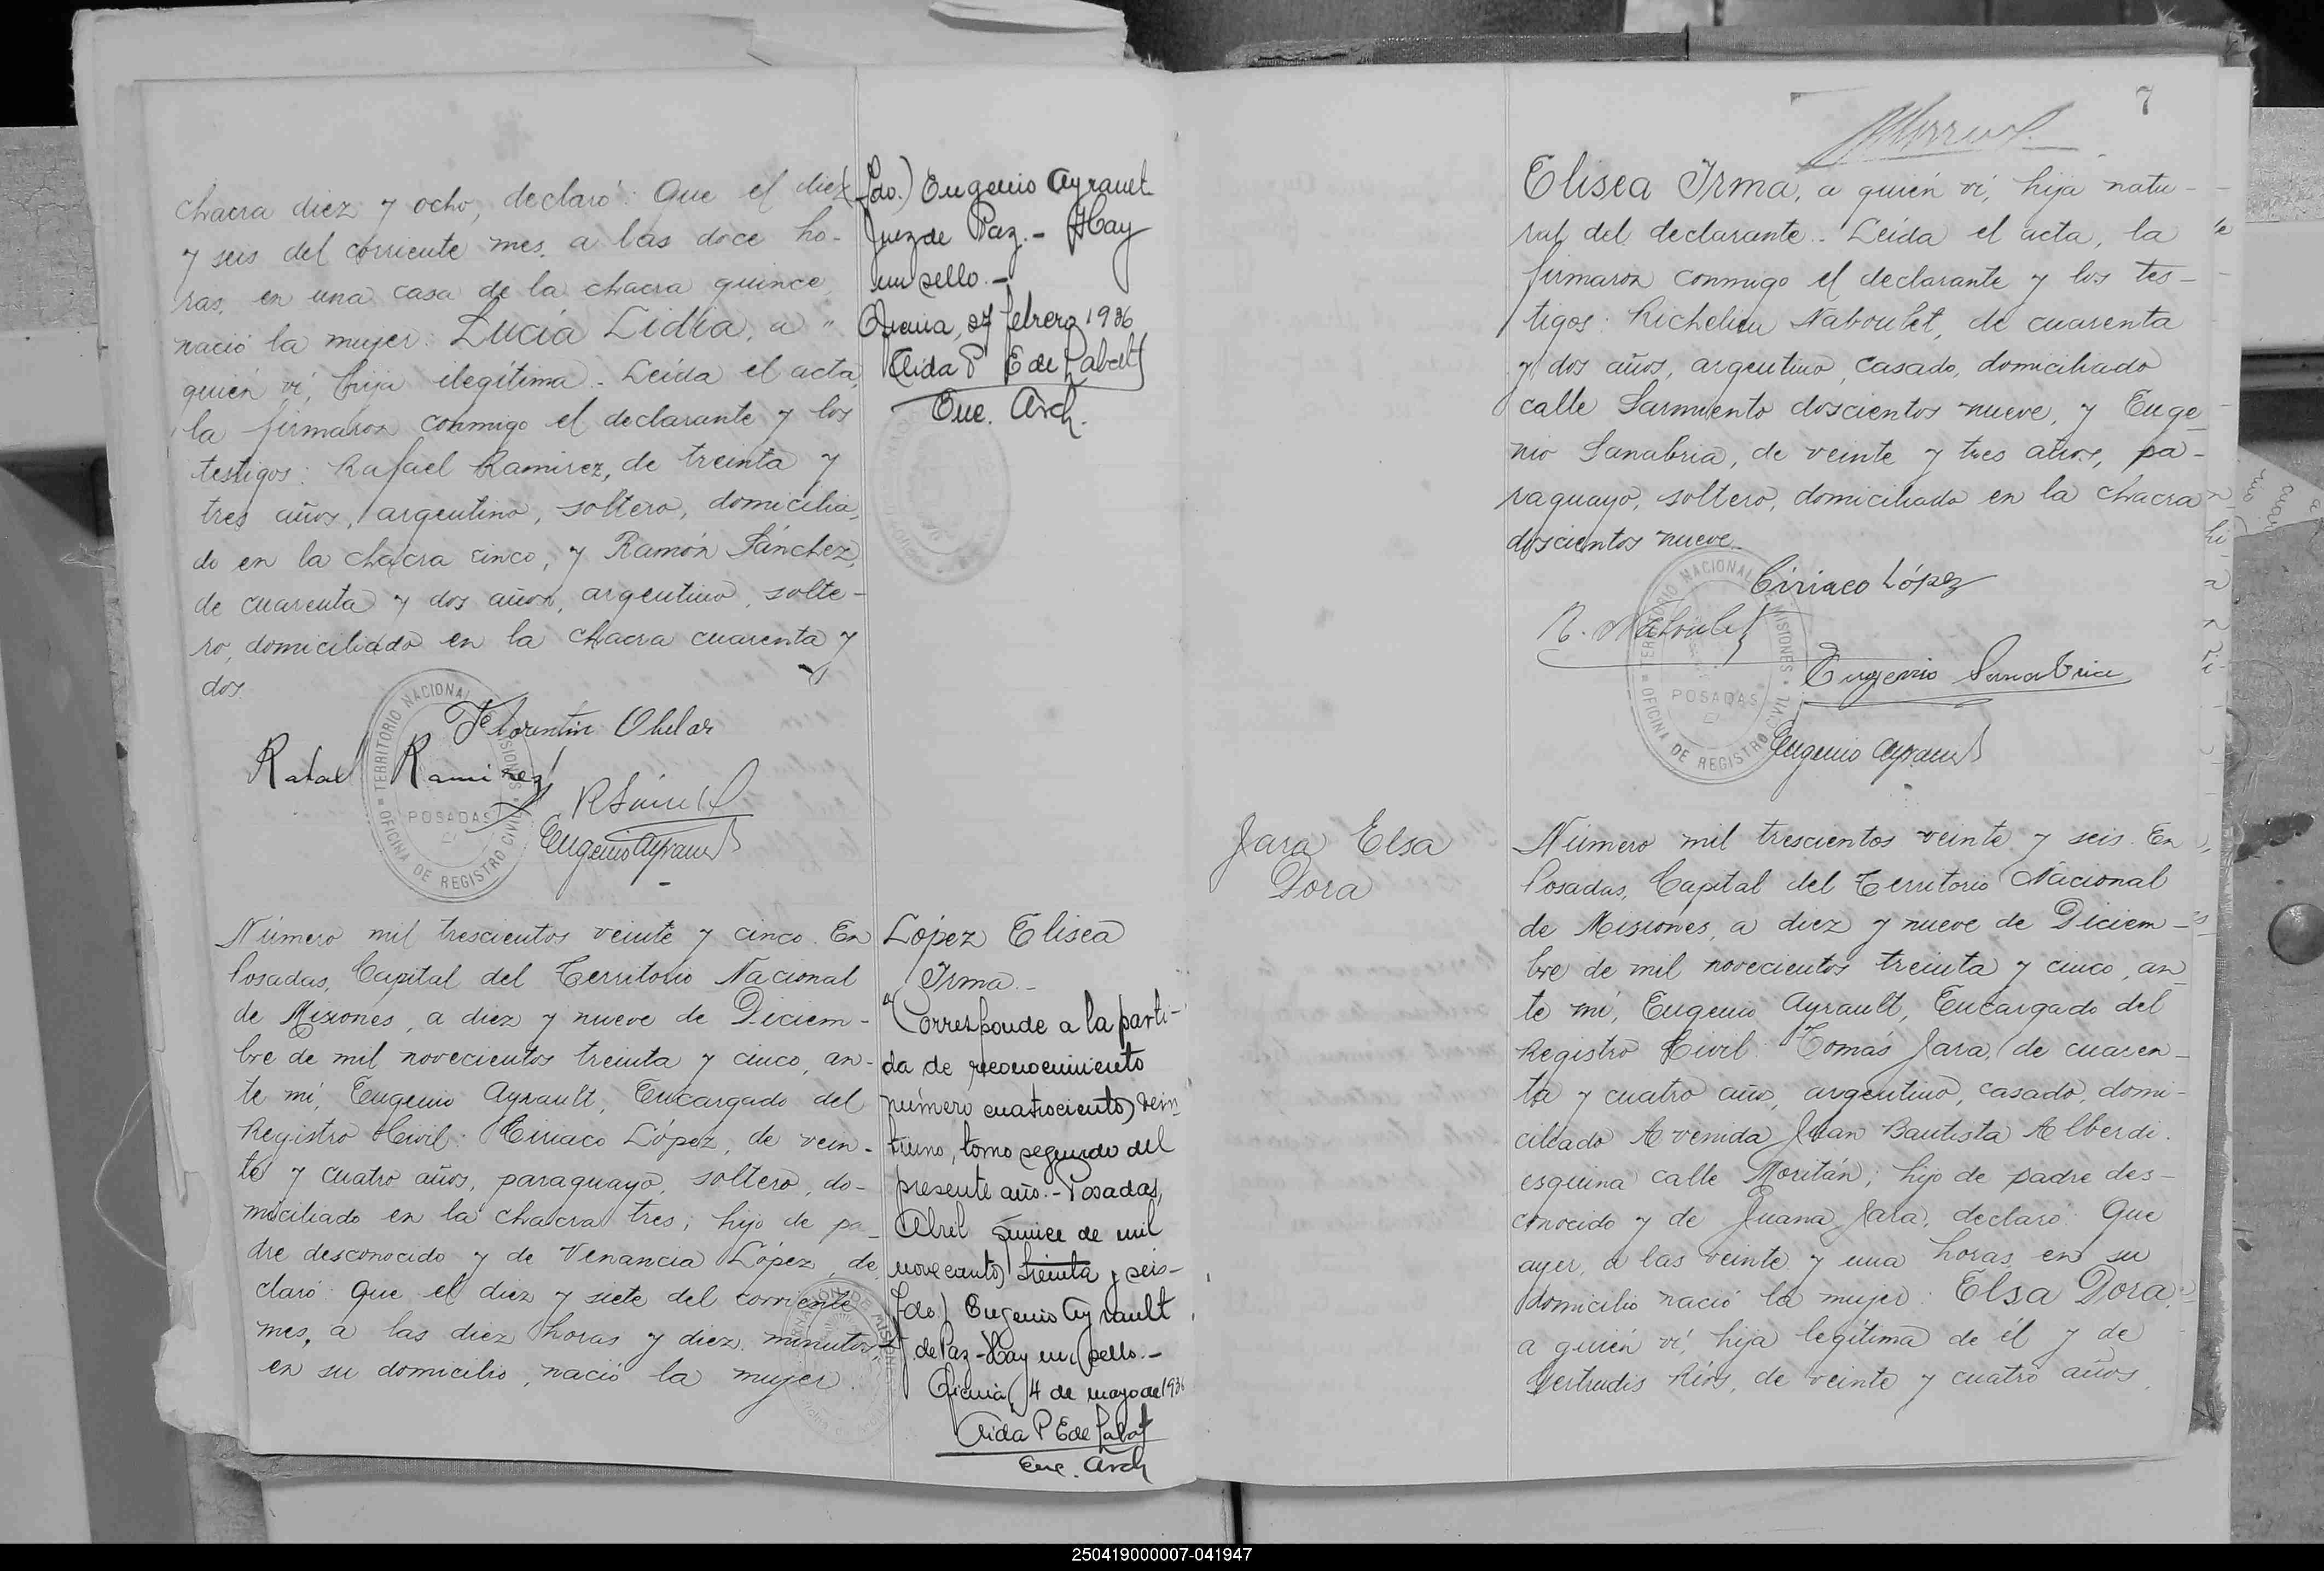 chacra diez y ocho, declaró: Que el diez
y seis del corriente mes, a las doce ho-
ras, en una casa de la chacra quince,
nació la mujer: Lucía Lidia, a "
quién ví, hija ilegítima.- Leída el acta,
la firmaron conmigo el declarante y los
testigos: Rafael Ramirez, de treinta y
tres años, argentino, soltero, domicilia-
do en la chacra cinco, y Ramón Sánchez,
de cuarenta y dos años, argentino, solte-
ro, domiciliado en la chacra cuarenta y
dos
Florentin Obelar
Rafael Ramirez
Eugenio Ayrault
TERRITORIO NACIONAL DE MISIONES
POSADAS
OFICINA DE REGISTRO CIVIL
Número mil trescientos veinte y cinco. En
Posadas, Capital del Territorio Nacional
de Misiones, a diez y nueve de Diciem-
bre de mil novecientos treinta y cinco, an-
te mí, Eugenio Ayrault, Encargado del
Registro Civil: Ciriaco López, de vein-
te y cuatro años, paraguayo, soltero, do-
miciliado en la chacra tres; hijo de pa-
dre desconocido y de Venancia López, de
claró: Que el diez y siete del corriente
mes, a las diez horas y diez minutos,
en su domicilio, nació la mujer
(fdo.) Eugenio Ayrault
Juez de Paz.- Hay
un sello.-
febrero 1936
Aida P E de
Enc. Arch.
López Elisea
Irma.-
Corresponde a la parti-
da de reconocimiento
número cuatrocientos vein
tiuno, tomo segundo del
presente año.- Posadas,
Abril quince de mil
novecientos treinta y seis-
fdo) Eugenio Ayrault
J. de Paz - Hay un sello.-
4 de mayo de 1936
Aida P E de
Enc. Arch
7
Elisea Irma, a quién ví, hija natu-
ral del declarante.- Leída el acta, la
firmaron conmigo el declarante y los tes-
tigos: Richelieu Naboulet, de cuarenta
y dos años, argentino, casado, domiciliado
calle Sarmiento doscientos nueve, y Euge
nio Sanabria, de veinte y tres años, pa-
raguayo, soltero, domiciliado en la chacra
doscientos nueve.
Ciriaco López
R. Naboulet
Eugenio Sanabria
Eugenio Ayrault
TERRITORIO NACIONAL DE MISIONES
POSADAS
OFICINA DE REGISTRO CIVIL
Jara Elsa
Dora
Número mil trescientos veinte y seis. En
Posadas, Capital del Territorio Nacional
de Misiones, a diez y nueve de Diciem-
bre de mil novecientos treinta y cinco, an
te mí, Eugenio Ayrault, Encargado del
Registro Civil: Tomás Jara, de cuaren-
ta y cuatro años, argentino, casado, domi-
ciliado Avenida Juan Bautista Alberdi
esquina calle Moritán; hijo de padre des-
conocido y de Juana Jara, declaró: Que
ayer, a las veinte y una horas, en su
domicilio nació la mujer: Elsa Dora,
a quién ví, hija legítima de él y de
Gertrudis Ríos, de veinte y cuatro años,
250419000007-041947